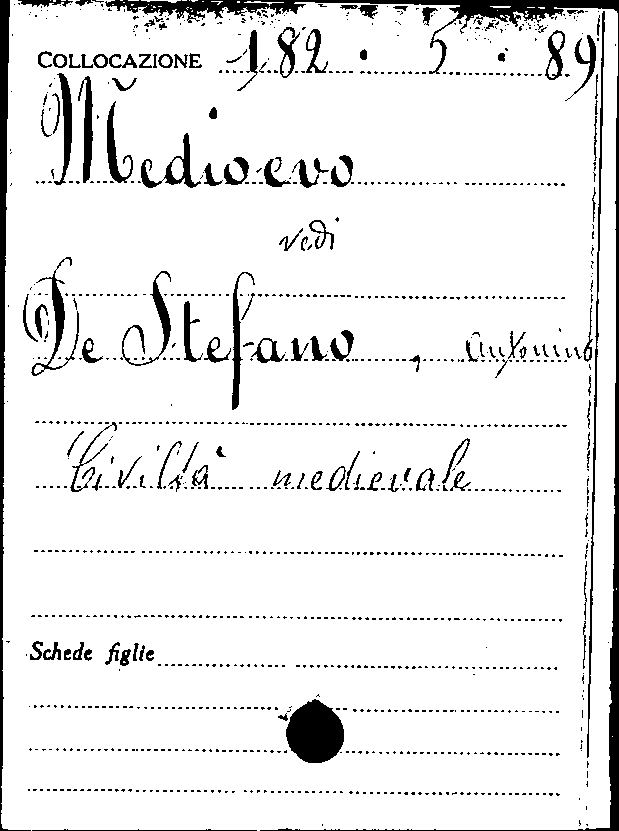 COLLOCAZIONE 182 . 5 . 89
Medioevo
vedi
De Stefano, Antonino
Civiltà medievale
Schede figlie